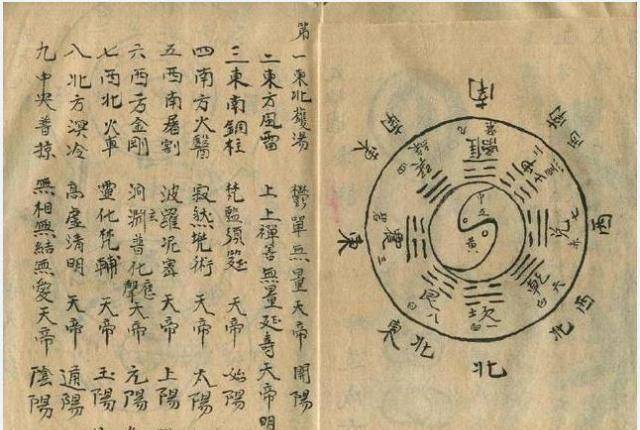 第一東北鑊湯 鬱單無量天帝 開陽
二東方風雷 上上禪善無量延壽天帝 明
三東南銅柱 梵監須延 天帝 始陽
四南方火醫 寂然兜術 天帝 太陽
五西南屠割 波羅泥蜜 天帝 上陽
六西方金剛 洞淵普化應聲天帝 元陽
七西北火車 靈化梵輔 天帝 玉陽
八北方溟冷 高虛清明 天帝 道陽
九中央普掠 無相無結無愛天帝 陰陽
南
西南
西
西北
北
東北
東
東南
離
兌 七 赤
乾 六 白
坎 一 白
艮 八 白
震 三
中五黄